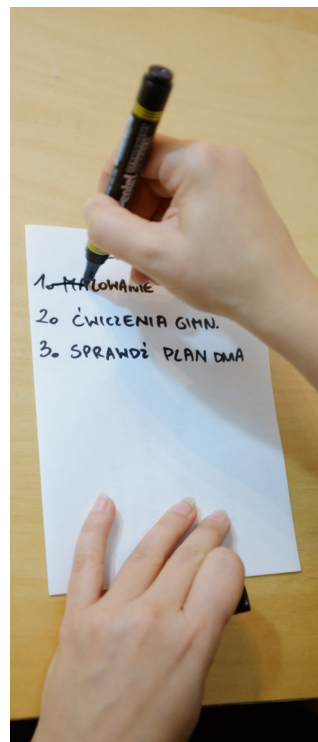 1. MALOWANIE
2. ĆWICZENIA GIMN.
3. SPRAWDŹ PLAN DNIA